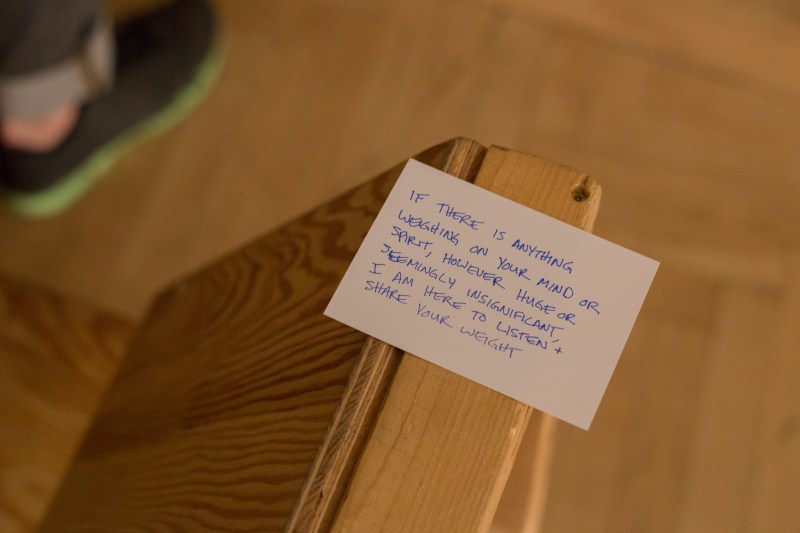 IF THERE IS ANYTHING
WEIGHING ON YOUR MIND OR
SPIRIT, HOWEVER HUGE OR
SEEMINGLY INSIGNIFICANT,
I AM HERE TO LISTEN +
SHARE YOUR WEIGHT